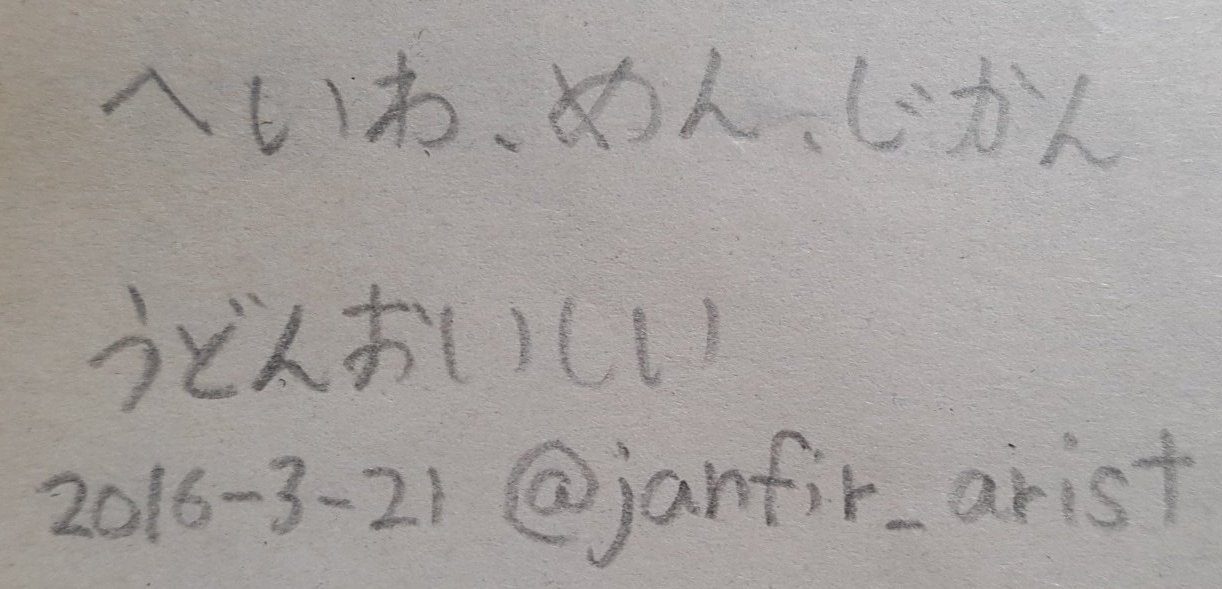 へいわ、めん、じかん
うどんおいしい
2016-3-21 @janfir_arist